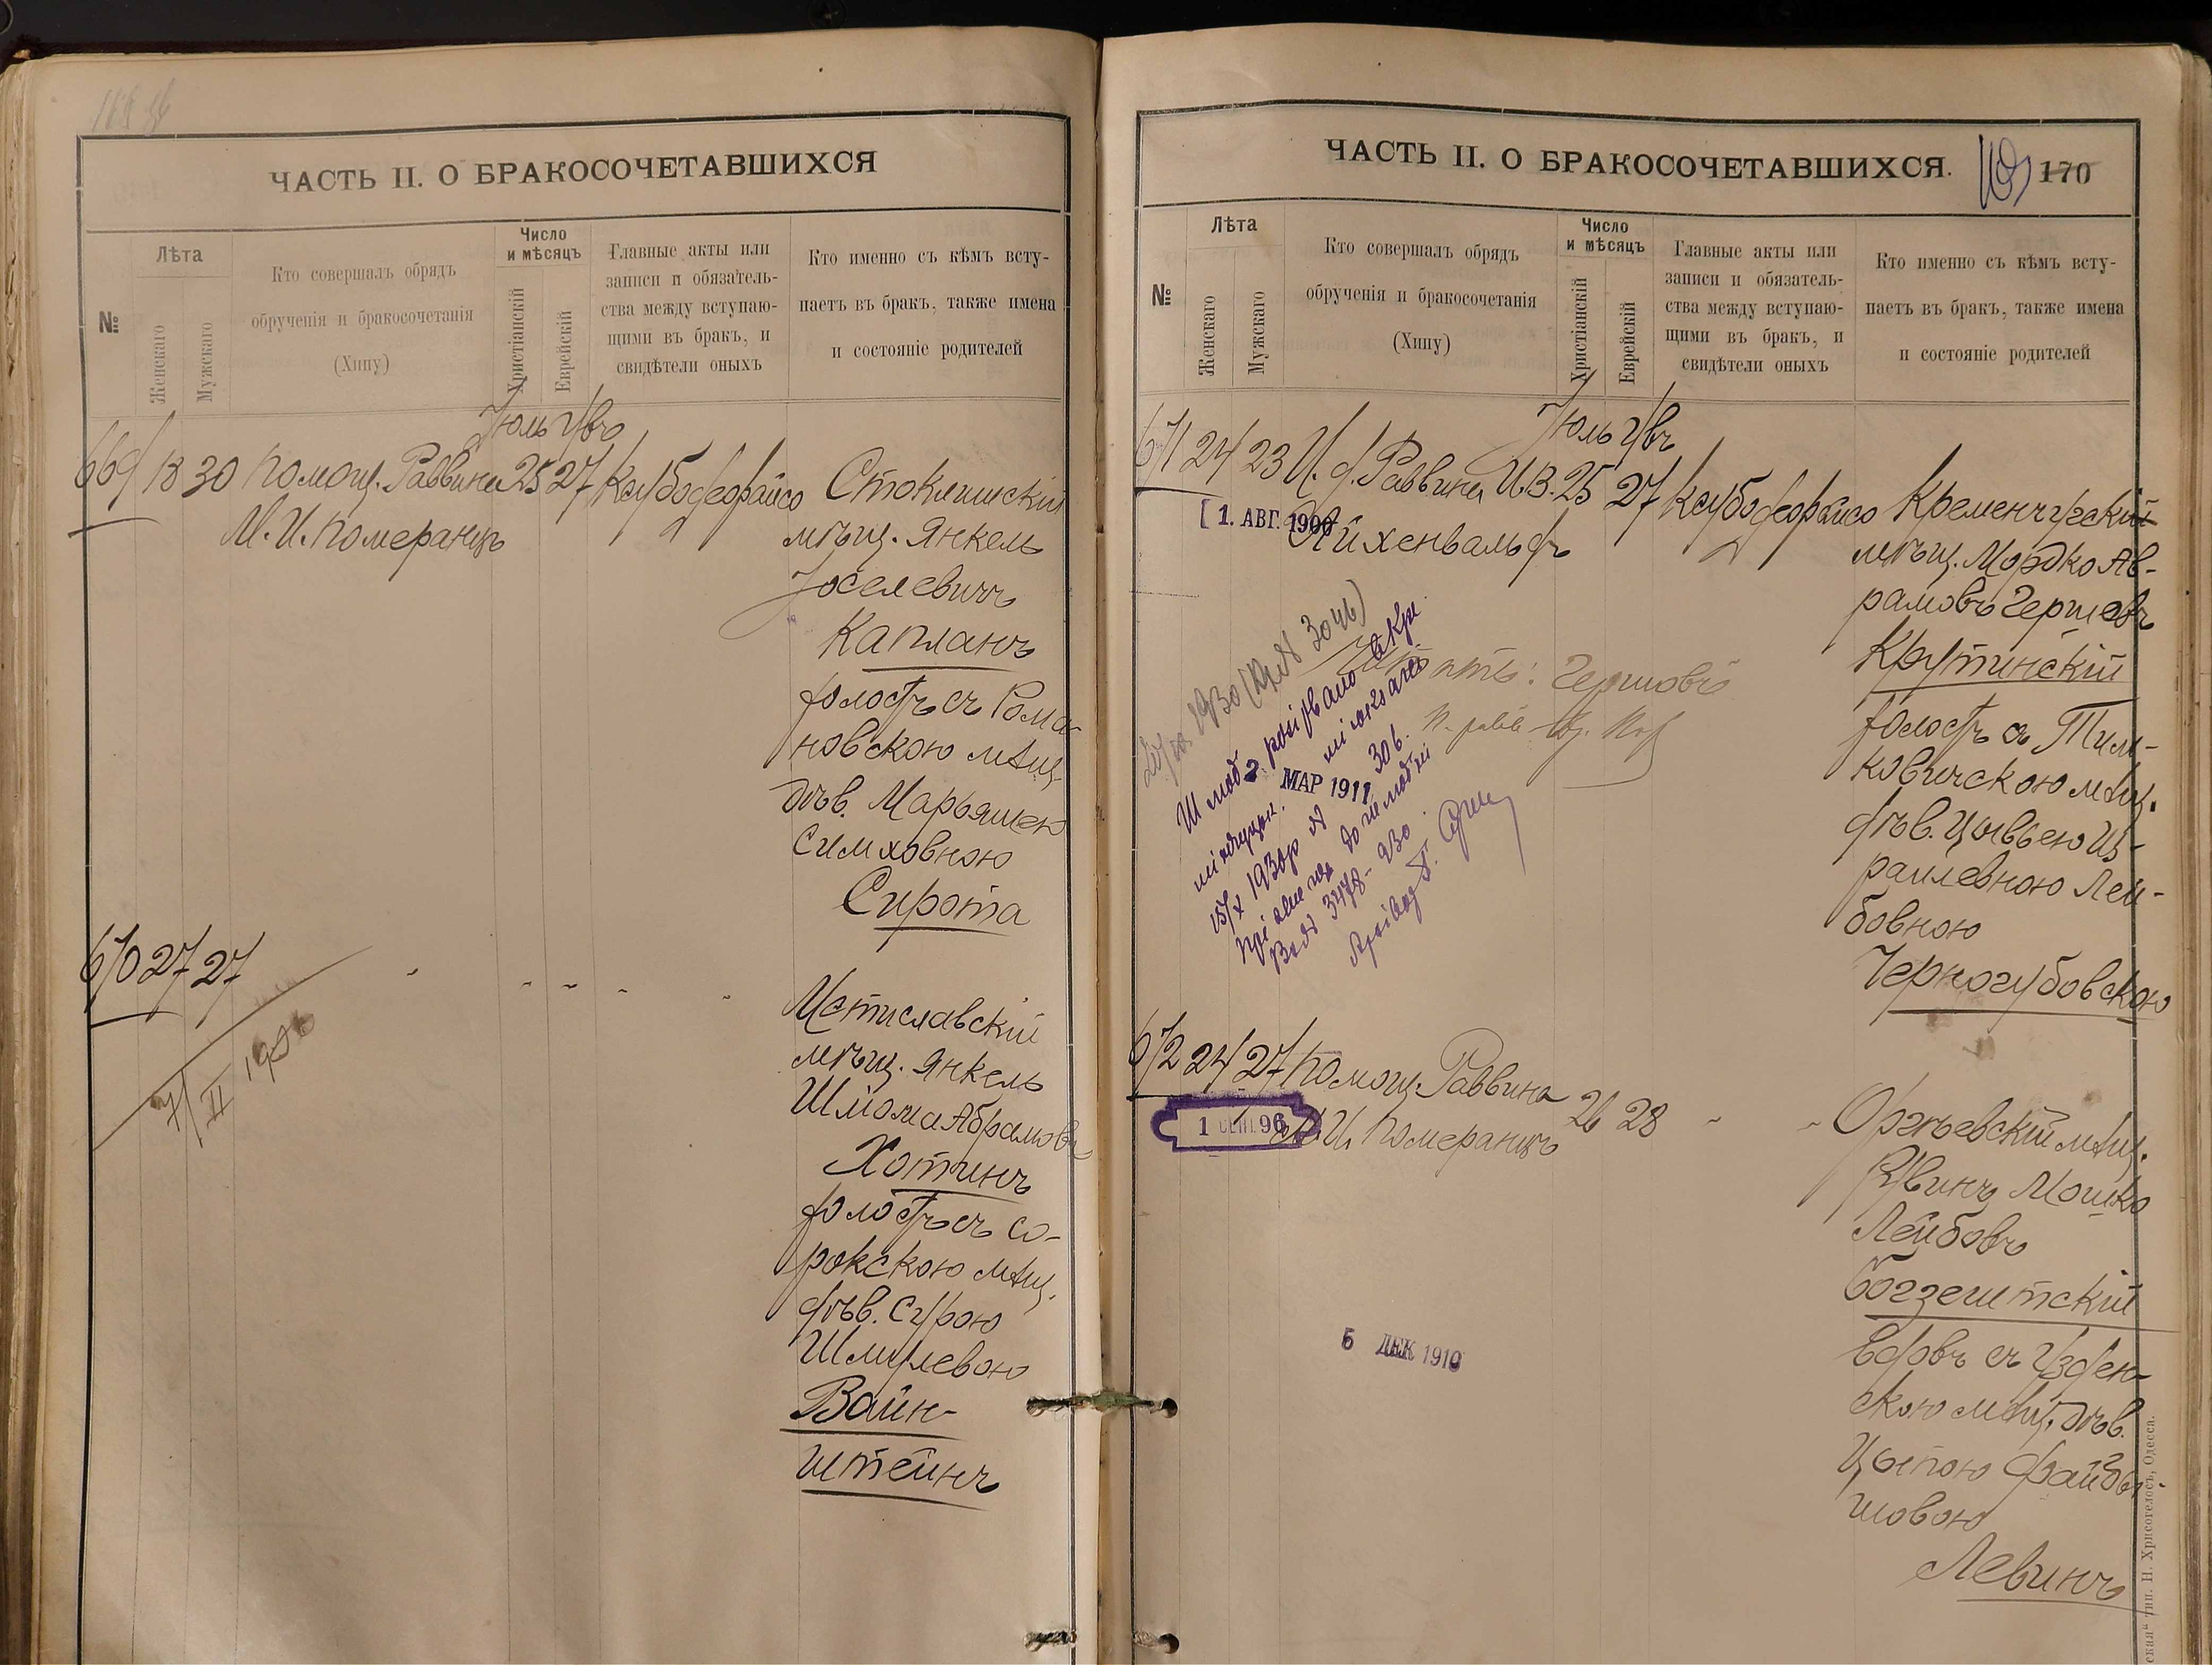 ЧАСТЬ II. О БРАКОСОЧЕТАВШИХСЯ
№
Лѣта
Женскаго
Мужскаго
Кто совершалъ обрядъ
обрученія и бракосочетанія
(Хипу)
Число
и мѣсяцъ
Христіанскій
Еврейскій
Главные акты или
записи и обязатель-
ства между вступаю-
щими въ бракъ, и
свидѣтели оныхъ
Кто именно съ кѣмъ всту-
паетъ въ бракъ, также имена
и состояніе родителей
Іюль
669 18 30 Помощ. Раввина 25 27 Стоклишскій
М. И. Померанцъ мѣщ. Янкель
Іоселевичъ
Капланъ
холостъ съ Рома-
новскою мѣщ.
дѣв. Марьяшею
Симховною
Сирота
670 27 27
Мстиславскій
мѣщ. Янкель
Шліома Абрамовъ
Хотинъ
холостъ съ Со-
рокскою мѣщ.
дѣв. Сурою
Шмулевою
Вайн-
штейнъ
7/II 1906
ЧАСТЬ II. О БРАКОСОЧЕТАВШИХСЯ.
170
№
Лѣта
Женскаго
Мужскаго
Кто совершалъ обрядъ
обрученія и бракосочетанія
(Хипу)
Число
и мѣсяцъ
Христіанскій
Еврейскій
Главные акты или
записи и обязатель-
ства между вступаю-
щими въ бракъ, и
свидѣтели оныхъ
Кто именно съ кѣмъ всту-
паетъ въ бракъ, также имена
и состояніе родителей
Іюль
671 24 23 И. д. Раввина И. З. 25 27 Кременчугскій
1. АВГ. 1900
Айхенвальдъ мѣщ. Мордко Ав-
рамовъ Гершовъ
Крутинскій
холостъ съ Тим-
ковичскою мѣщ.
дѣв. Цывьею Из-
раилевною Лей-
бовною
Черногубовскою
Гершовъ
МАР 1911
672 24 27 Помощ. Раввина 26 28 Оргѣевскій мѣщ.
1 СЕН. 96
М. И. Померанцъ Рувинъ Мошко
Лейбовъ
Богзештскій
вдовъ съ Узден-
скою мѣщ. дѣв.
Цыпою Файбы-
шовою
Левинъ
5 ДЕК 1910
тип. Н. Хрисогелосъ, Одесса.